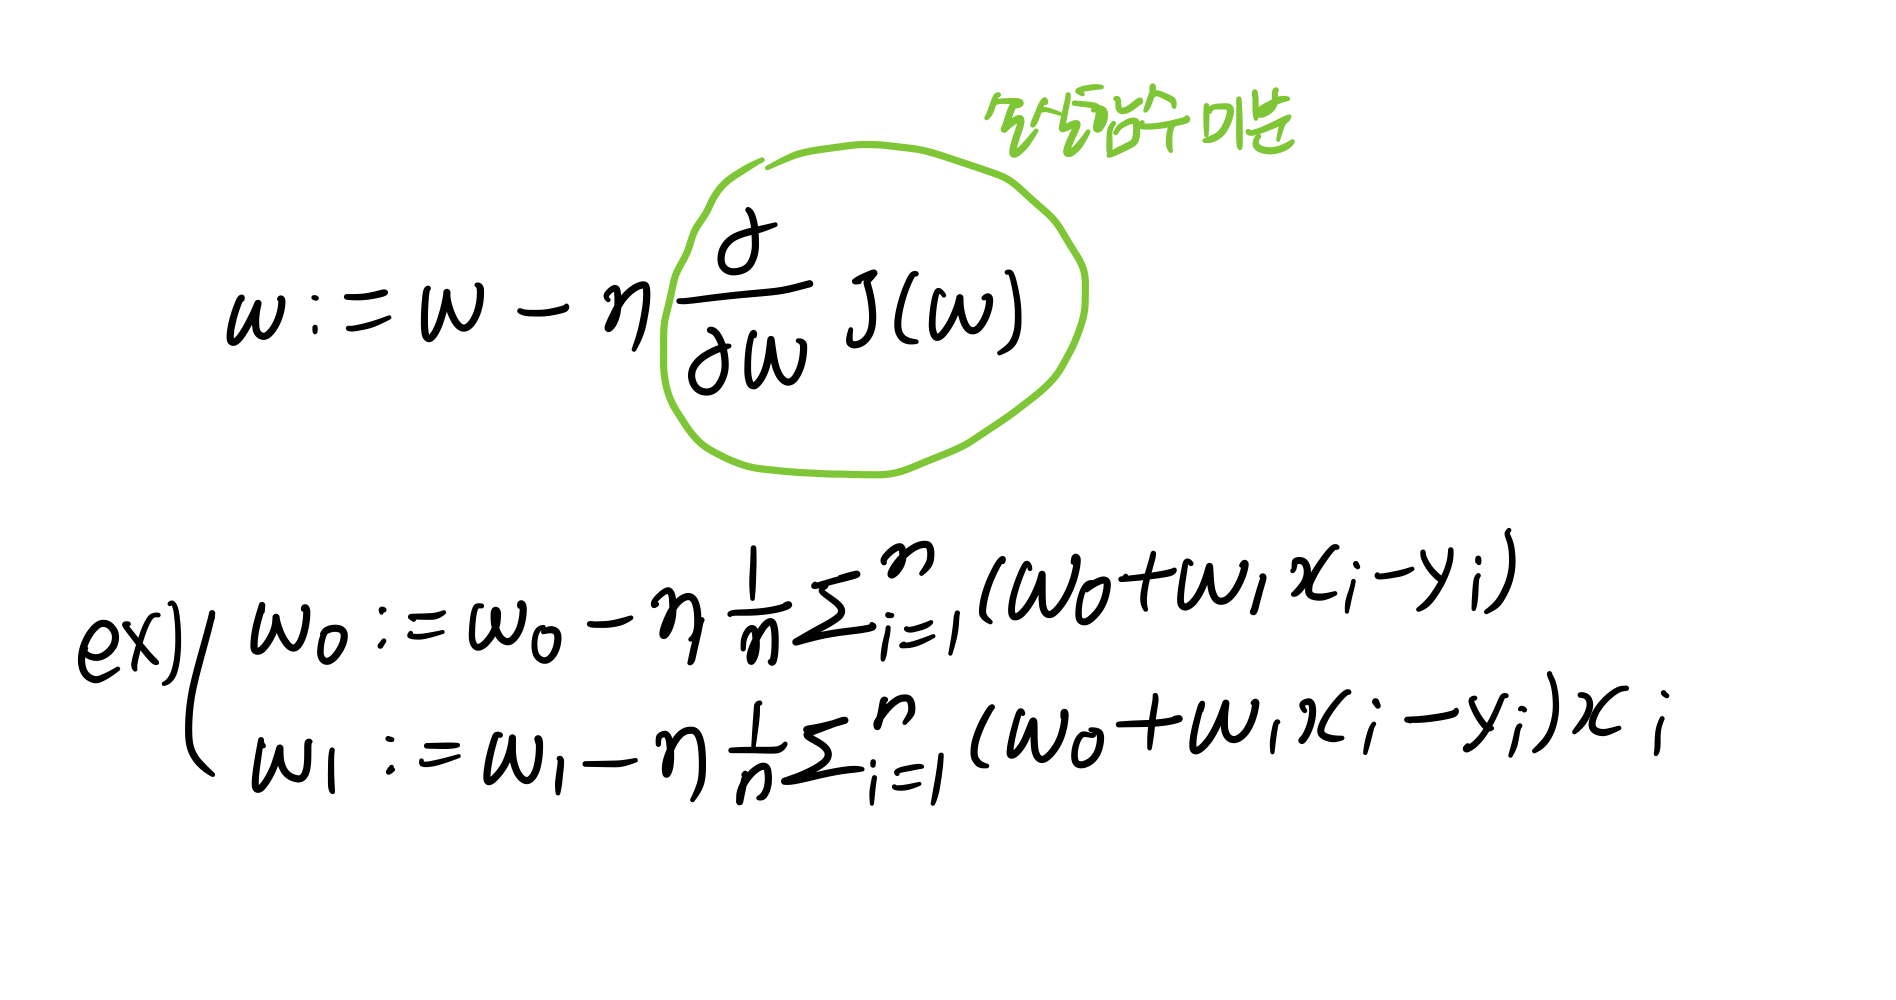 손실함수 미분
w := w - η ∂/∂w J(w)
ex) w₀ := w₀ - η 1/n Σⁿᵢ₌₁ (w₀ + w₁xᵢ - yᵢ)
w₁ := w₁ - η 1/n Σⁿᵢ₌₁ (w₀ + w₁xᵢ - yᵢ)xᵢ